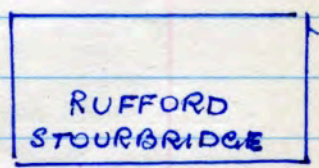 RUFFORD
STOURBRIDGE